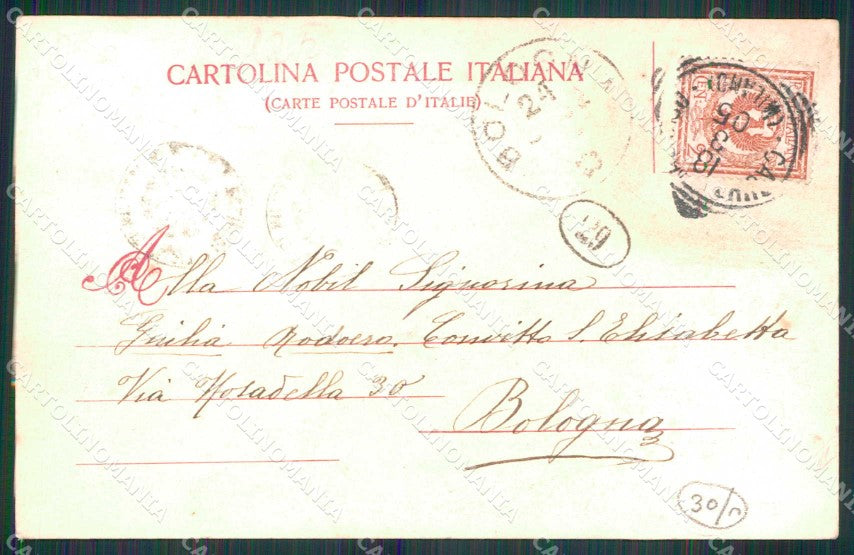 CARTOLINA POSTALE ITALIANA
(CARTE POSTALE D'ITALIE)
BOLOGNA
24
18 3 05
29
Alla Nobil Signorina
Giulia Rodoero. Convitto S. Elisabetta
Via Nosadella 30
Bologna
30/c
CARTOLINOMANIA